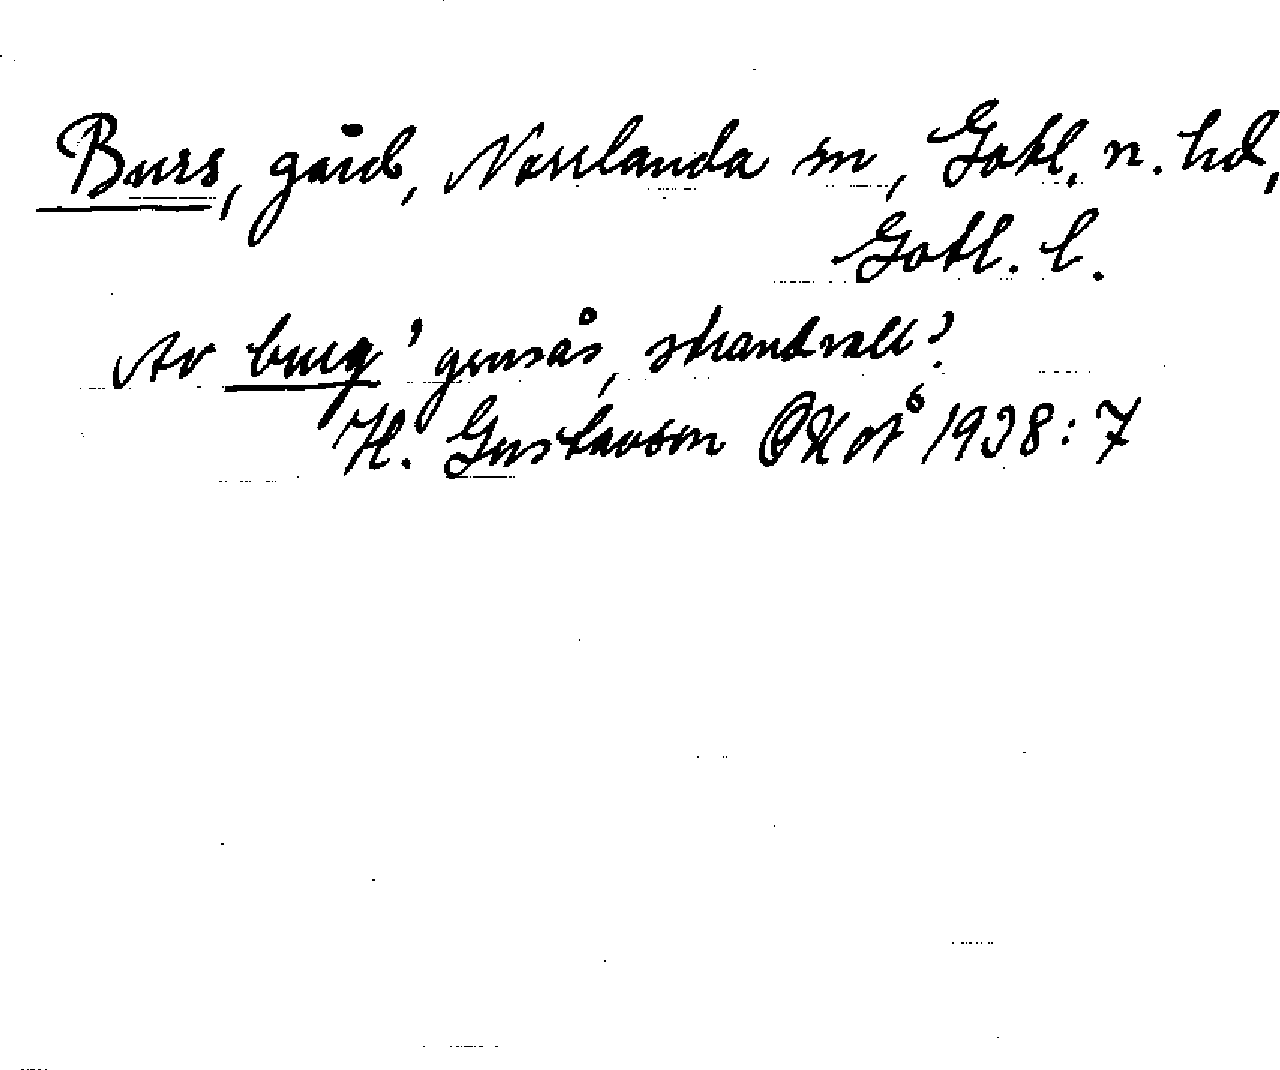 Burs, gård, Norrlanda sn, Gotl. n. hd,
Gotl. l.
Av burg 'grusås, strandvall'.
H. Gustavson 1938:7